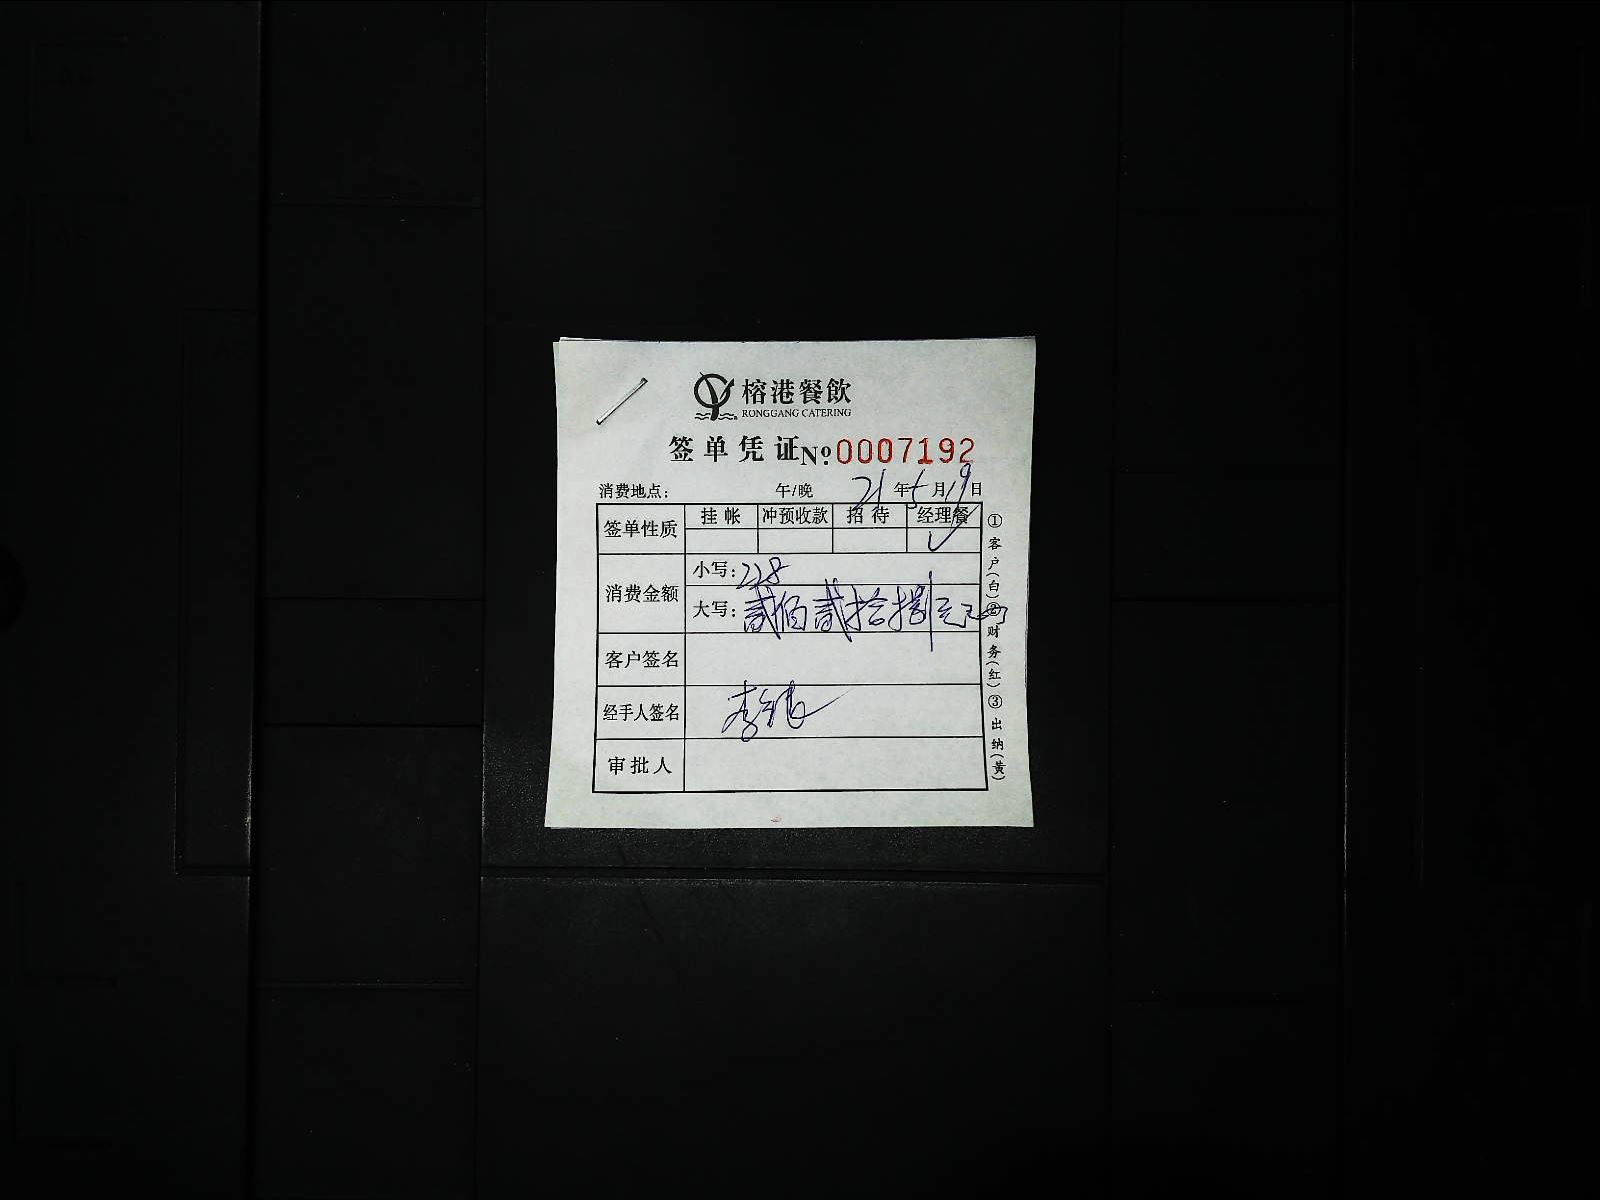 榕港餐飲
RONGGANG CATERING
签单凭证 №0007192
消费地点: 午/晚 21年5月19日
签单性质 挂帐 冲预收款 招待 经理餐
✓
消费金额
小写:228
大写:贰佰贰拾捌元
客户签名
经手人签名 李
审批人
①客户(白)②财务(红)③出纳(黄)